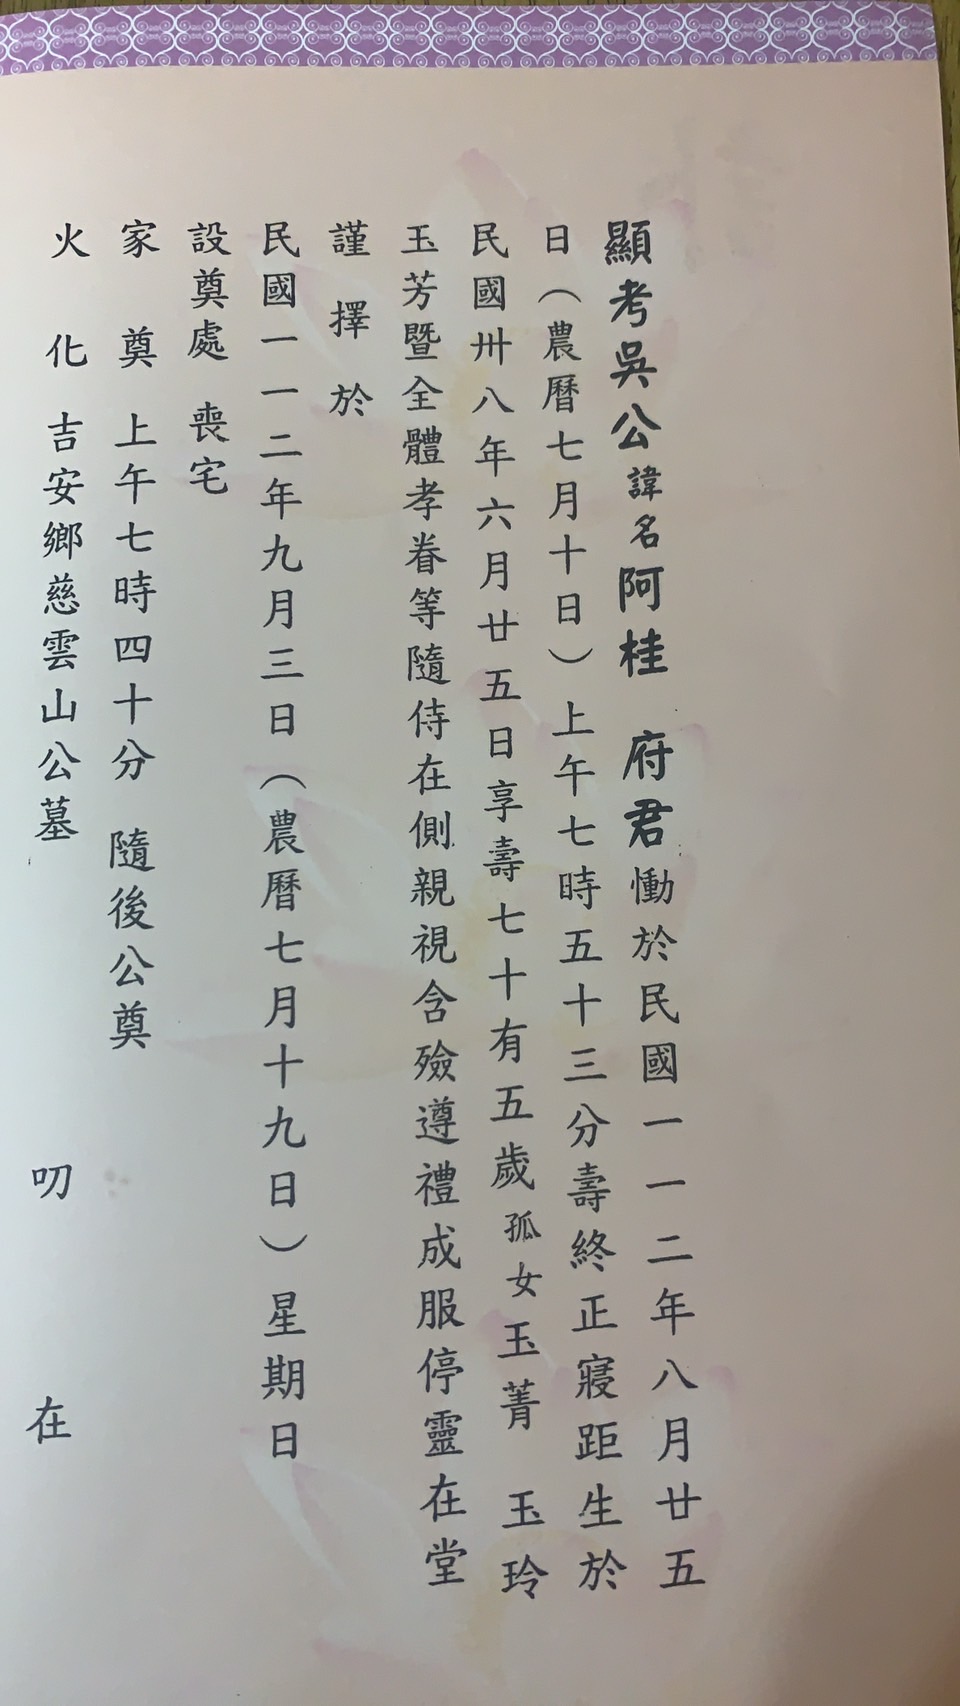 顯考吳公諱名阿桂　府君慟於民國一一二年八月廿五
日（農曆七月十日）上午七時五十三分壽終正寢距生於
民國卅八年六月廿五日享壽七十有五歲孤女玉菁　玉玲
玉芳暨全體孝眷等隨侍在側親視含殮遵禮成服停靈在堂
謹擇於
民國一一二年九月三日（農曆七月十九日）星期日
設奠處　喪宅
家　奠　上午七時四十分　隨後公奠
火　化　吉安鄉慈雲山公墓　　叨　　在